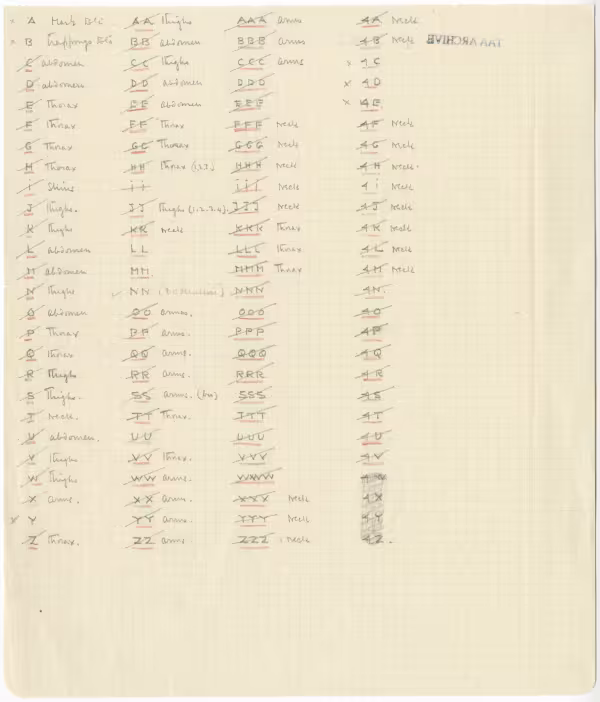 A Herb Etc AA Thighs AAA Arms 4A Neck
B Trappings Etc BB abdomen BBB Arms 4B Neck TAA ARCHIVE
C abdomen CC Thighs CCC arms 4C
D abdomen DD abdomen DDD 4D
E Thorax EE abdomen EEE 4E
F Thorax FF Thorax FFF Neck 4F Neck
G Thorax GG Thorax GGG Neck 4G Neck
H Thorax HH Thorax (1,2,3) HHH Neck 4H Neck
i Shins ii iii Neck 4i Neck
J Thighs. JJ Thighs (1.2.3.4) JJJ Neck 4J Neck
K Thighs KK Neck KKK Thorax 4K Neck
L abdomen LL LLL Thorax 4L Neck
M abdomen MM. MMM Thorax 4M Neck
N Thighs NN NNN 4N.
O abdomen OO arms. OOO 4O
P Thorax PP arms. PPP 4P
Q Thorax QQ arms. QQQ 4Q
R Thighs RR arms. RRR 4R
S Thighs. SS arms. SSS 4S
T Neck. TT Thorax. TTT 4T
U abdomen. UU UUU 4U
V Thighs VV Thorax. VVV 4V
W Thighs WW arms. WWW 4W
X arms. XX arms. XXX Neck 4X
Y YY arms. YYY Neck 4Y
Z Thorax. ZZ arms ZZZ Neck 4Z.